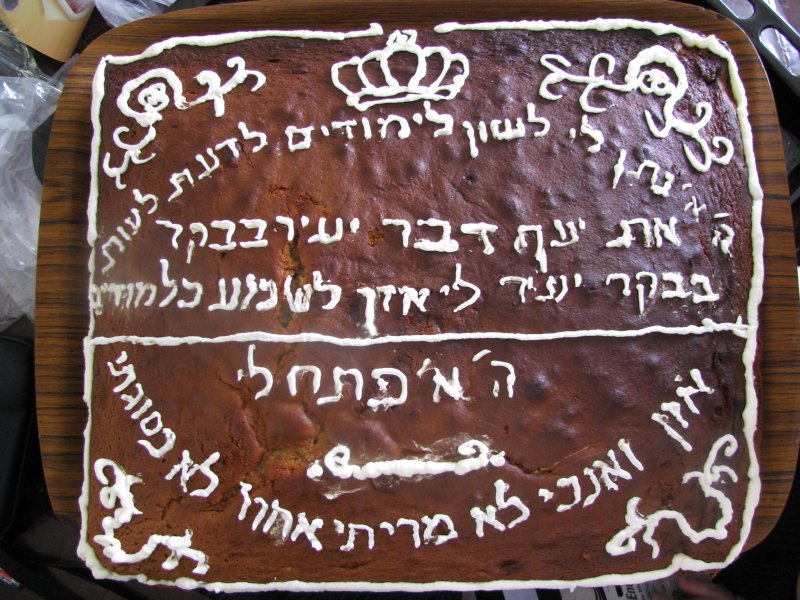 ה' א' נתן לי לשון לימודים לדעת לעות
את יעף דבר יעיר בבקר
בבקר יעיר לי אזן לשמוע כלמודים
ה' א' פתח לי
אזן ואנכי לא מריתי אחור לא נסוגתי